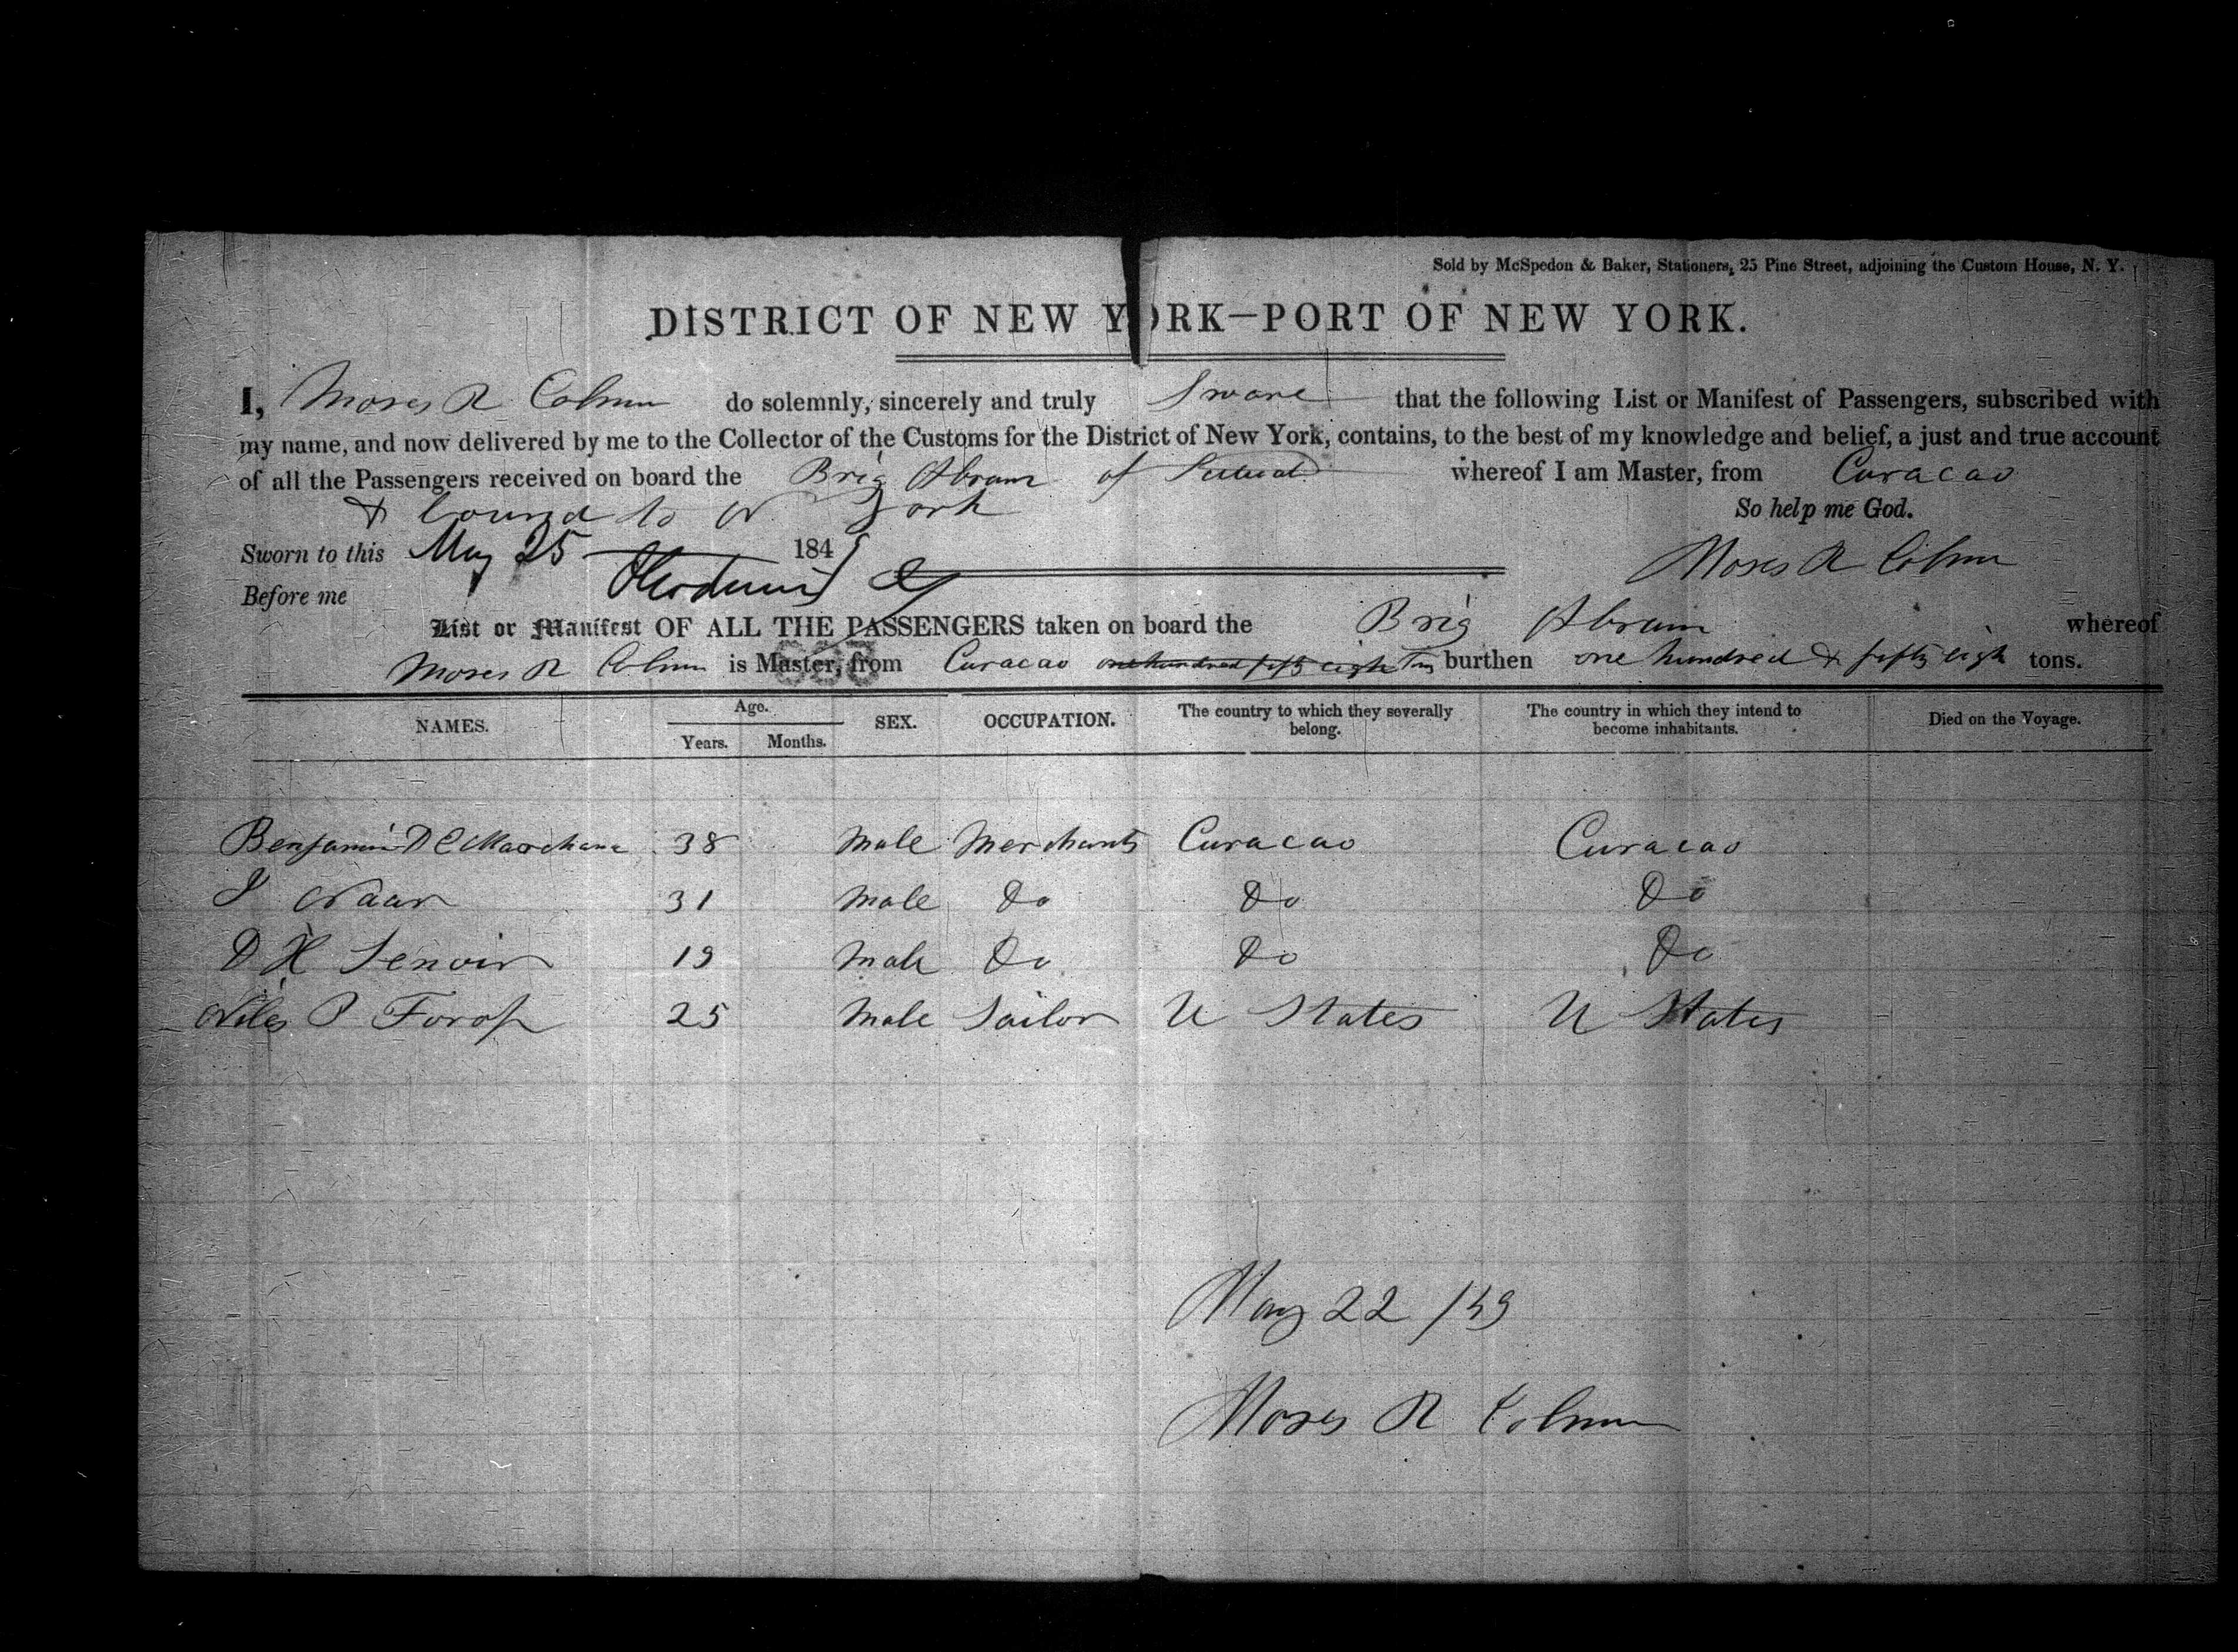 Sold by McSpedon & Baker, Stationers, 25 Pine Street, adjoining the Custom House, N. Y.
DISTRICT OF NEW YORK—PORT OF NEW YORK.
I, Moses R Colman do solemnly, sincerely and truly Sware that the following List or Manifest of Passengers, subscribed with
my name, and now delivered by me to the Collector of the Customs for the District of New York, contains, to the best of my knowledge and belief, a just and true account
of all the Passengers received on board the Brig Abram of whereof I am Master, from Curacao
& bound to N York So help me God.
Sworn to this May 25 184 Moses R Colman
Before me
List or Manifest OF ALL THE PASSENGERS taken on board the Brig Abram whereof
Moses R Colman is Master, from Curacao one hundred fifty eight burthen one hundred & fifty eigh tons.
NAMES. Age. Years. Months. SEX. OCCUPATION. The country to which they severally belong. The country in which they intend to become inhabitants. Died on the Voyage.
Benjamin D 38 Male Merchants Curacao Curacao
Naar 31 Male Do Do Do
D H Senoir 19 Male Do Do Do
P 25 Male Sailor U States U States
May 22 /49
Moses R Colman